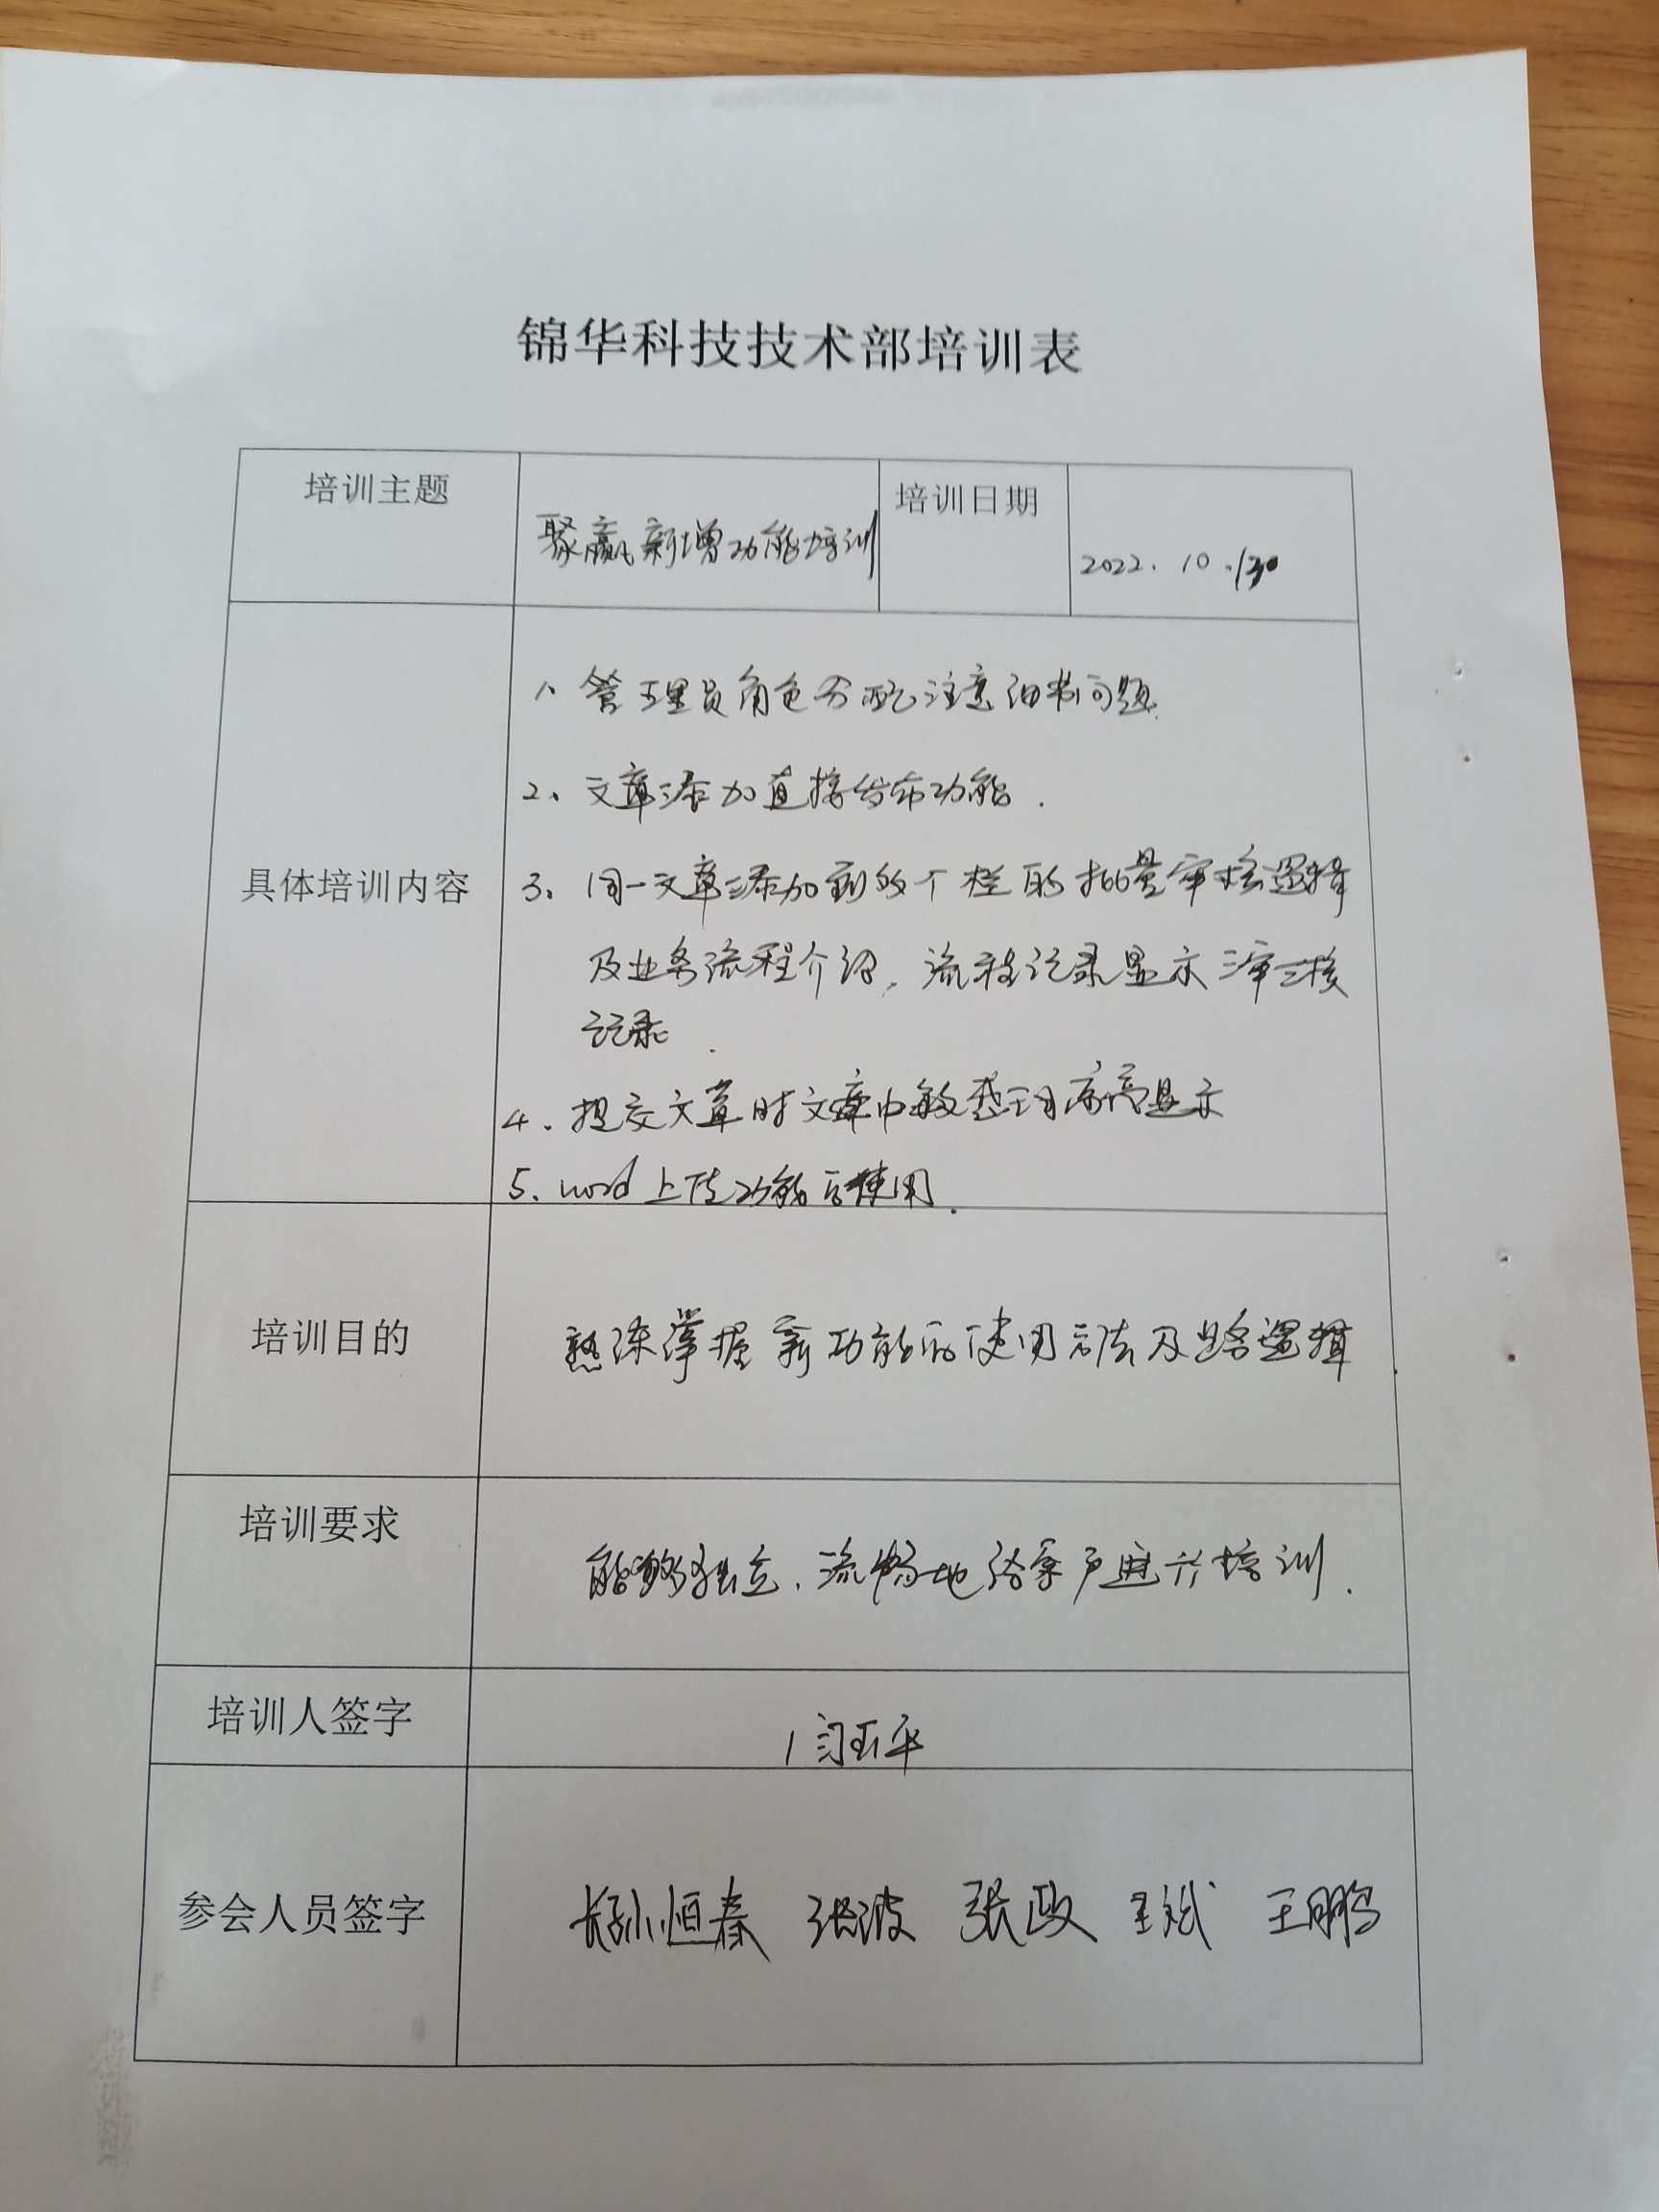 锦华科技技术部培训表
培训主题
聚赢新增功能培训
培训日期
2022.10.
具体培训内容
1、管理员角色分配注意细节问题.
2、文章添加直接发布功能.
3、同一文章添加到多个栏的批量审核逻辑
及业务流程介绍,流程记录显示三审三核
记录.
4.提交文章时文章中敏感词高亮显示
5.word上传功能使用.
培训目的
熟练掌握新功能的使用方法及业务逻辑.
培训要求
能够独立、流畅地给客户进行培训.
培训人签字
参会人员签字
张波 张政 王斌 王鹏